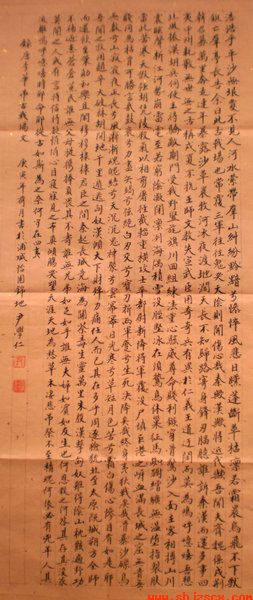 浩浩乎平沙無垠敻不見人河水縈帶羣山糾紛黯兮慘悴風悲日曛蓬斷草枯凜若霜晨鳥飛不下獸
鋌亡羣亭長告余曰此古戰場也常覆三軍往往鬼哭天陰則聞傷心哉秦歟漢歟將近代歟吾聞夫齊魏徭戍荆
韓召募萬里奔走連年暴露沙草晨牧河冰夜渡地闊天長不知歸路寄身鋒刃腷臆誰訴秦漢而還多事四
夷中州耗斁無世無之古稱戎夏不抗王師文教失宣武臣用奇奇兵有異於仁義王道迂闊而莫爲嗚呼噫嘻吾想
夫北風振漠胡兵伺便主將驕敵期門受戰野豎旄旗川回組練法重心駭威尊命賤利鏃穿骨驚沙入面主客相搏山川
震眩聲析江河勢崩雷電至若窮陰凝閉凜冽海隅積雪沒脛堅冰在鬚鷙鳥休巢征馬踟躕繒纊無溫墮指裂膚
當此苦寒天假強胡憑陵殺氣以相翦屠徑截輜重橫攻士卒都尉新降將軍覆沒屍填巨港之岸血滿長城之窟無貴無
賤同爲枯骨可勝言哉鼓衰兮力盡矢竭兮弦絕白刃交兮寶刀折兩軍蹙兮生死決降矣哉終身夷狄戰矣哉骨暴沙礫鳥
無聲兮山寂寂夜正長兮風淅淅魂魄結兮天沉沉鬼神聚兮雲冪冪日光寒兮草短月色苦兮霜白傷心慘目有如是耶
吾聞之牧用趙卒大破林胡開地千里遁逃匈奴漢傾天下財殫力痡任人而已其在多乎周逐獫狁北至太原既城朔方全師
而還飲至策勳和樂且閑穆穆棣棣君臣之間秦起長城竟海爲關荼毒生靈萬里朱殷漢擊匈奴雖得陰山枕骸遍野功
不補患蒼蒼蒸民誰無父母提攜捧負畏其不壽誰無兄弟如足如手誰無夫婦如賓如友生也何恩殺之何咎其存其沒家
莫聞知人或有言將信將疑悁悁心目寢寐見之布奠傾觴哭望天涯天地爲愁草木淒悲弔祭不至精魂何依必有凶年人其
流離嗚呼噫嘻時耶命耶從古如斯爲之奈何守在四夷
錄唐李華弔古戰場文 庚寅年荷月書於浦城 尹學仁
www.sbjszcx.com